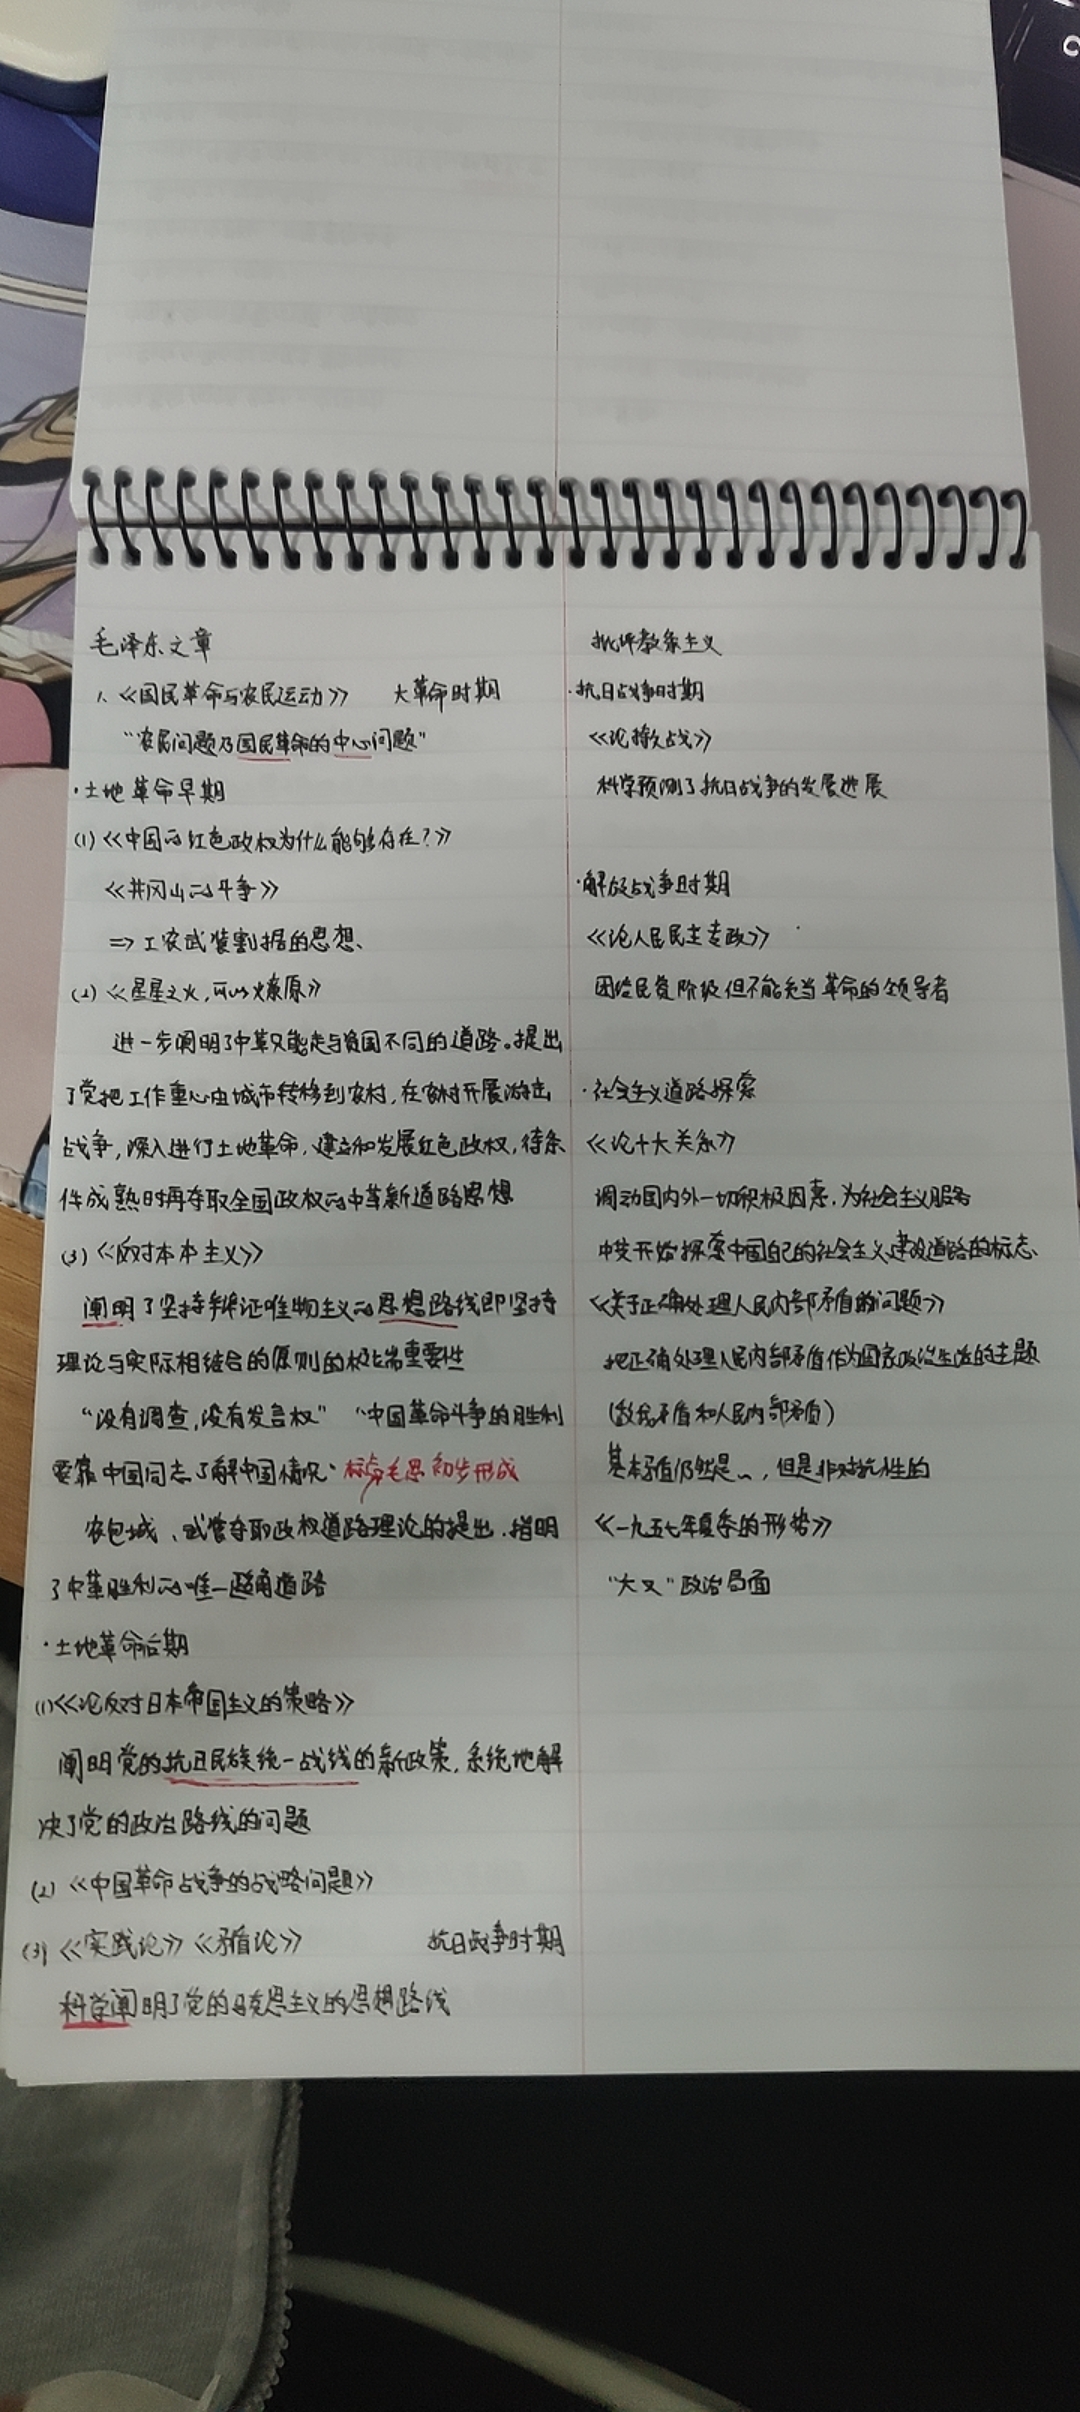 毛泽东文章
1、《国民革命与农民运动》 大革命时期
"农民问题乃国民革命的中心问题"
·土地革命早期
(1)《中国的红色政权为什么能够存在?》
《井冈山的斗争》
=> 工农武装割据的思想、
(2)《星星之火,可以燎原》
进一步阐明了中革只能走与资国不同的道路。提出
了党把工作重心由城市转移到农村,在农村开展游击
战争,深入进行土地革命,建立和发展红色政权,待条
件成熟时再夺取全国政权的中革新道路思想
(3)《反对本本主义》
阐明了坚持辩证唯物主义的思想路线即坚持
理论与实际相结合的原则的极端重要性
"没有调查,没有发言权" "中国革命斗争的胜利
要靠中国同志了解中国情况" 标志毛思初步形成
农包城、武装夺取政权道路理论的提出,指明
了中革胜利的唯一正确道路
·土地革命后期
(1)《论反对日本帝国主义的策略》
阐明党的抗日民族统一战线的新政策,系统地解
决了党的政治路线的问题
(2)《中国革命战争的战略问题》
(3)《实践论》《矛盾论》 抗日战争时期
科学阐明了党的马克思主义的思想路线
批评教条主义
·抗日战争时期
《论持久战》
科学预测了抗日战争的发展进展
·解放战争时期
《论人民民主专政》
团结民资阶级但不能充当革命的领导者
·社会主义道路探索
《论十大关系》
调动国内外一切积极因素,为社会主义服务
中共开始探索中国自己的社会主义建设道路的标志、
《关于正确处理人民内部矛盾的问题》
把正确处理人民内部矛盾作为国家政治生活的主题
(敌我矛盾和人民内部矛盾)
基本矛盾仍然是…,但是非对抗性的
《一九五七年夏季的形势》
"大又"政治局面